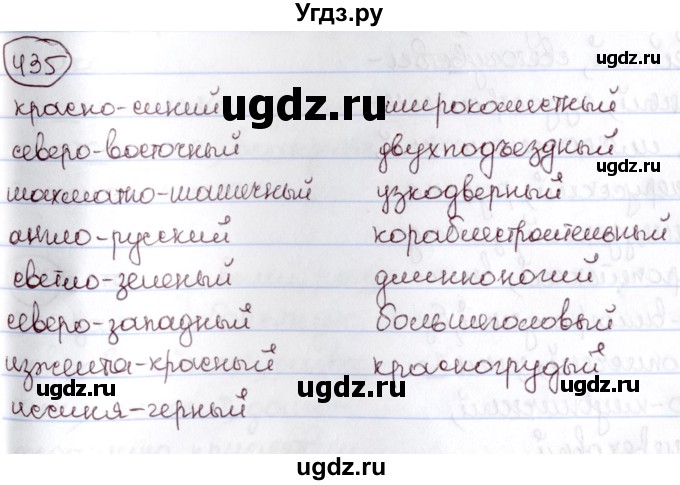 Угдз.ру
435
красно-синий
северо-восточный
шахматно-шашечный
англо-русский
светло-зеленый
северо-западный
изжелта-красный
иссиня-черный
широколистный
двухподъездный
узкодверный
кораблестроительный
длинноногий
большеголовый
красногрудый
ugdz.ru
ugdz.ru
ugdz.ru
ugdz.ru
ugdz.ru
ugdz.ru
ugdz.ru
ugdz.ru
ugdz.ru
ugdz.ru
ugdz.ru